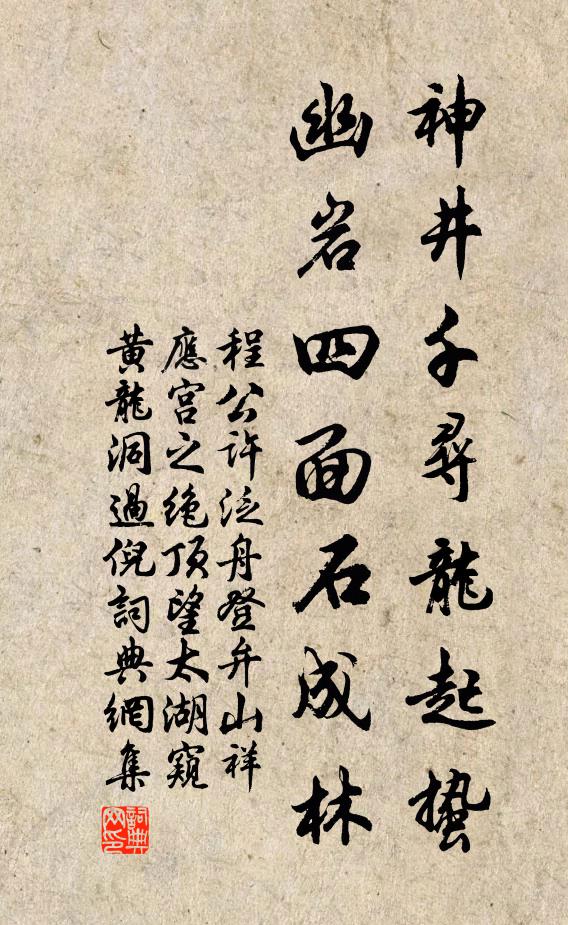 神井千尋龍起蟄
幽岩四面石成林
程公許泛舟登弁山祥
應宫之绝頂望太湖窺
黄龍洞過倪詞典網集
詞典
网印